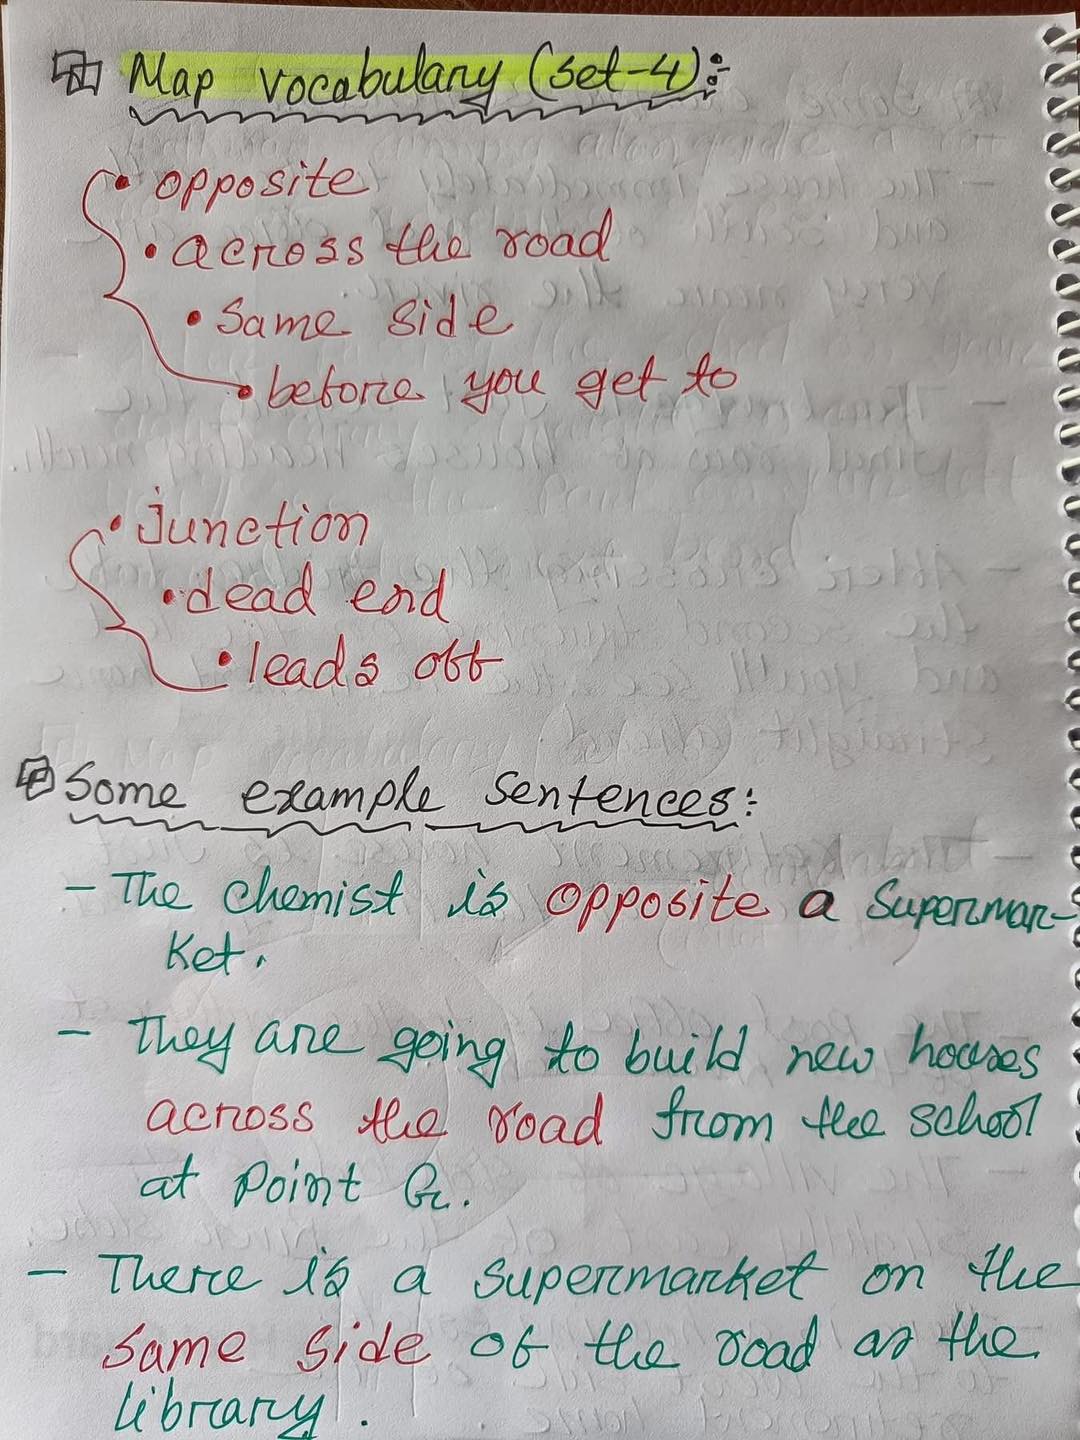 Map vocabulary (set-4):-
• opposite
• across the road
• same side
• before you get to
• junction
• dead end
• leads off
Some example sentences:
- The chemist is opposite a supermar-
ket.
- They are going to build new houses
across the road from the school
at point G.
- There is a supermarket on the
same side of the road as the
library.